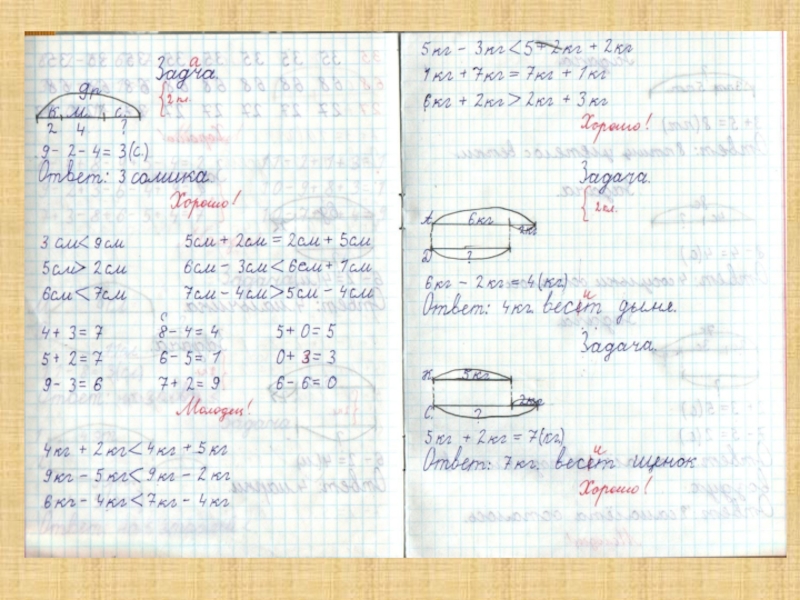 Задча.
а
9р.
{2 кл.
К. М. С.
2 4 ?
9 - 2 - 4 = 3(с.)
Ответ: 3 сомика.
Хорошо!
3 см < 9 см 5см + 2см = 2см + 5см
5см > 2 см 6см - 3см < 6см + 1см
6см < 7см 7см - 4см > 5см - 4см
4 + 3 = 7 8 - 4 = 4 5 + 0 = 5
5 + 2 = 7 6 - 5 = 1 0 + 3 = 3
9 - 3 = 6 7 + 2 = 9 6 - 6 = 0
Молодец!
4кг + 2кг < 4кг + 5кг
9кг - 5кг < 9кг - 2кг
6кг - 4кг < 7кг - 4кг
5кг - 3кг < 5 + 2кг + 2кг
1кг + 7кг = 7кг + 1кг
6кг + 2кг > 2кг + 3кг
Хорошо!
Задача.
{2кл.
А. 6кг 2кг
Д. ?
6кг - 2кг = 4(кг)
и
Ответ: 4кг. весет дыня.
Задача.
К. 5кг 2кг
С. ?
5кг + 2кг = 7(кг)
и
Ответ: 7кг. весет щенок
Хорошо!